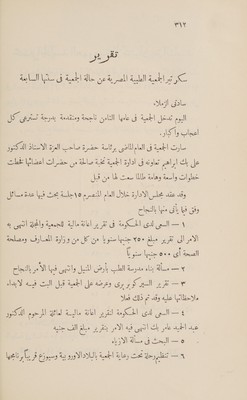 ٣١٢
تقرير
سكرتير الجمعية الطبية المصرية عن حالة الجمعية في سنتها السابعة
سادتي الزملاء
اليوم تدخل الجمعية في عامها الثامن ناجحة ومتقدمة بدرجة تسترعى كل
اعجاب واكبار.
سارت الجمعية في العام الماضي برئاسة حضرة صاحب العزة الاستاذ الدكتور
على بك ابراهيم تعاونه في ادارة الجمعية نخبة صالحة من حضرات اعضائها فخطت
خطوات واسعة وهامة طالما سعت لها من قبل
وقد عقد مجلس الادارة خلال العام المنصرم ١٥ جلسة بحث فيها عدة مسائل
وفق فيها يأتى منها بالنجاح
١ — السعى لدى الحكومة في تقرير اعانة مالية للجمعية والمجلة انتهى بها
الامر الى تقرير مبلغ ٢٥٠ جنيها سنويا من كل من وزارة المعارف ومصلحة
الصحة أى ٥٠٠ جنيها سنويا
٢ — مسألة بناء مدرسة الطب بأرض المنيل وانتهى فيها الأمر بالنجاح
٣ — تقرير السير كوبر برى وعرضه على الجمعية قبل البت فيه لابداء
ملاحظاتها عليه وقد تم ذلك فعلا
٤ — السعى لدى الحكومة لتقرير اعانة مالية لعائلة المرحوم الدكتور
عبد الحميد عامر بك انتهى فيه الامر بتقرير مبلغ الف جنيه
٥ — البحث في مسألة الازياء
٦ — تنظيم رحلة تحت رعاية الجمعية بالبلاد الاوروبية وسيوزع قريبا برنامجها